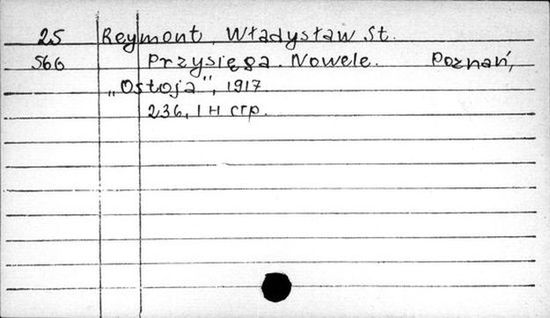 25 Reymont, Władysław St.
566 Przysięga. Nowele. Poznań,
„Ostoja", 1917
236, 1 н стр.